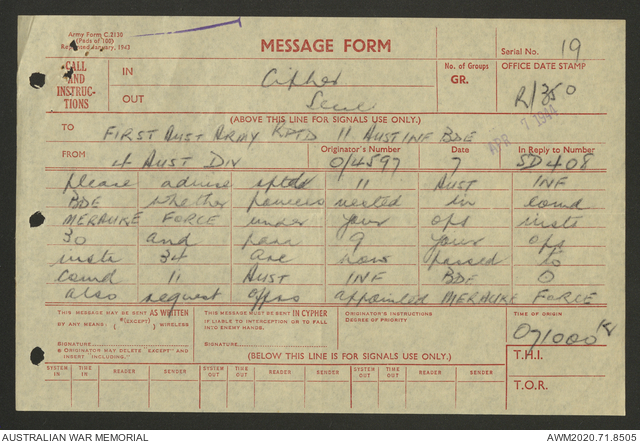 Army Form C.2130
(Pads of 100)
Reprinted January, 1943
MESSAGE FORM
Serial No. 19
CALL AND INSTRUCTIONS
IN Cipher
OUT
No. of Groups GR.
OFFICE DATE STAMP
R/350
APR 7 1944
(ABOVE THIS LINE FOR SIGNALS USE ONLY.)
TO FIRST AUST ARMY RPTD 11 AUST INF BDE
FROM 4 AUST DIV
Originator's Number 0/4597
Date 7
In Reply to Number SD408
please advise rptd 11 AUST INF
BDE whether powers vested in comd
MERAUKE FORCE under your ops insts
30 and para 9 your ops
insts 34 are now passed to
comd 11 AUST INF BDE O
also request appointed MERAUKE FORCE
THIS MESSAGE MAY BE SENT AS WRITTEN
BY ANY MEANS. (*(EXCEPT) ) WIRELESS
SIGNATURE
ORIGINATOR MAY DELETE "EXCEPT" AND INSERT "INCLUDING."
THIS MESSAGE MUST BE SENT IN CYPHER
IF LIABLE TO INTERCEPTION OR TO FALL INTO ENEMY HANDS.
SIGNATURE
ORIGINATOR'S INSTRUCTIONS
DEGREE OF PRIORITY
TIME OF ORIGIN
071000K
(BELOW THIS LINE IS FOR SIGNALS USE ONLY.)
T.H.I.
T.O.R.
SYSTEM IN TIME IN READER SENDER SYSTEM OUT TIME OUT READER SENDER SYSTEM OUT TIME OUT READER SENDER
AUSTRALIAN WAR MEMORIAL
AWM2020.71.8505